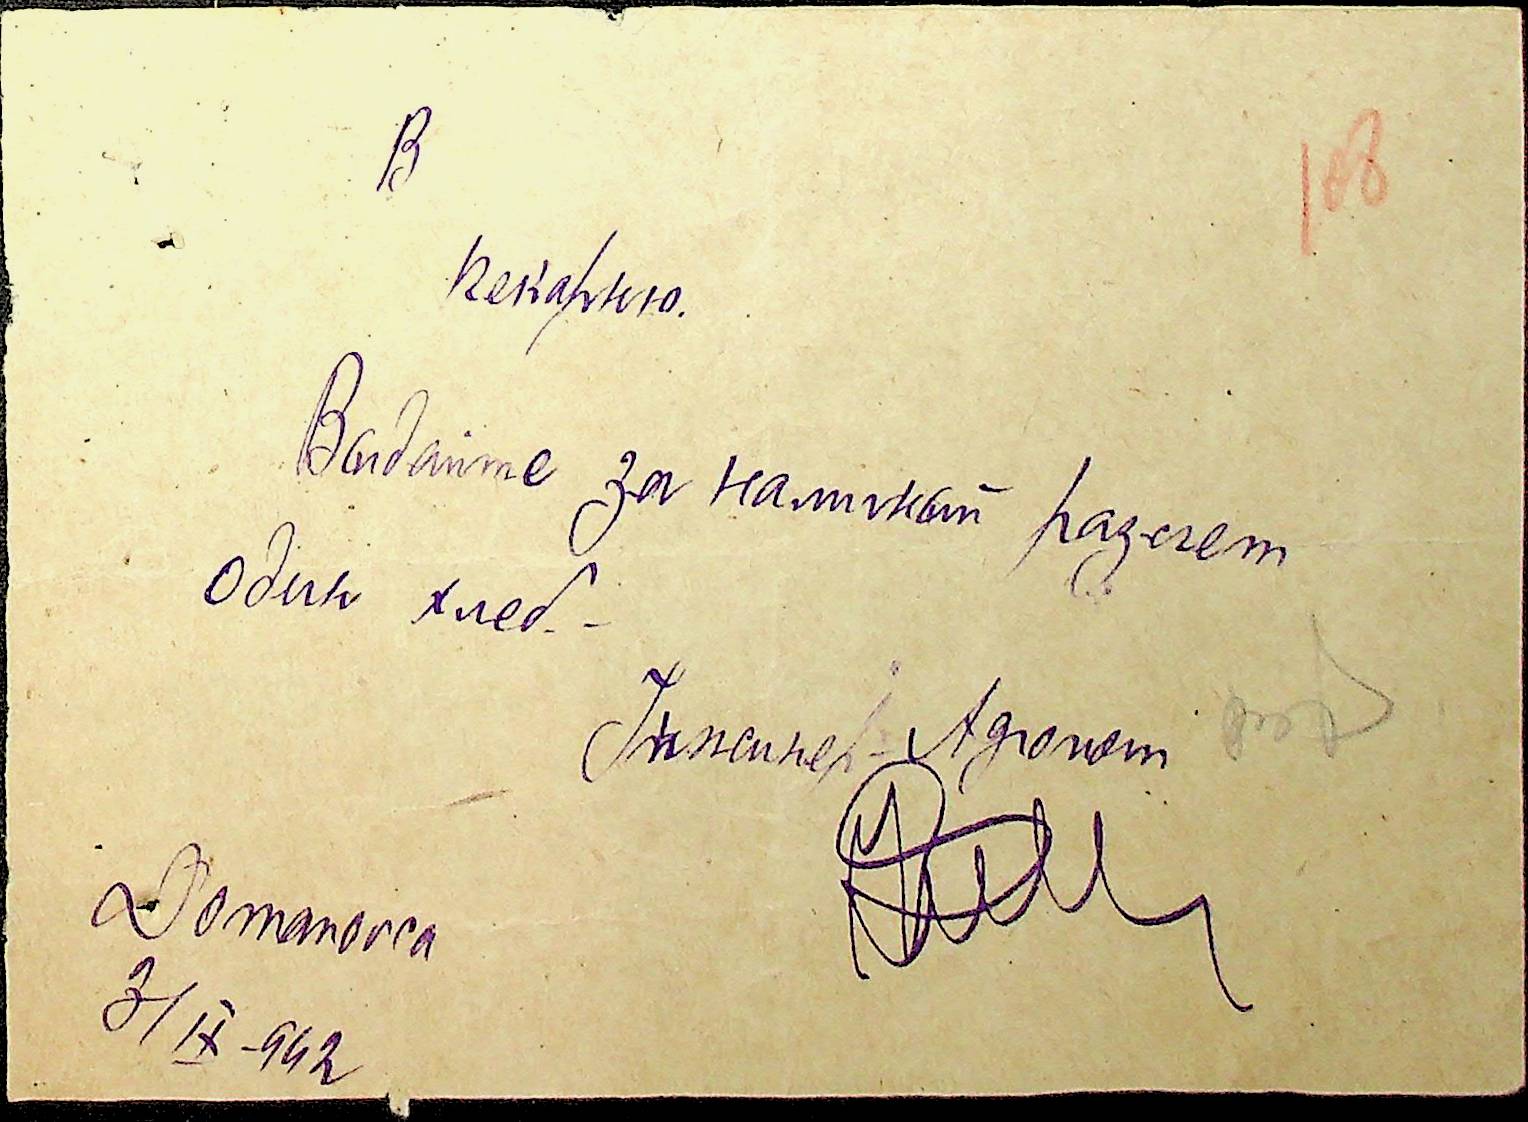 В
пекарню.
108
Выдайте за наличный разчет
один хлеб.-
Інженер-Агроном
Domanovca
3/IX-942